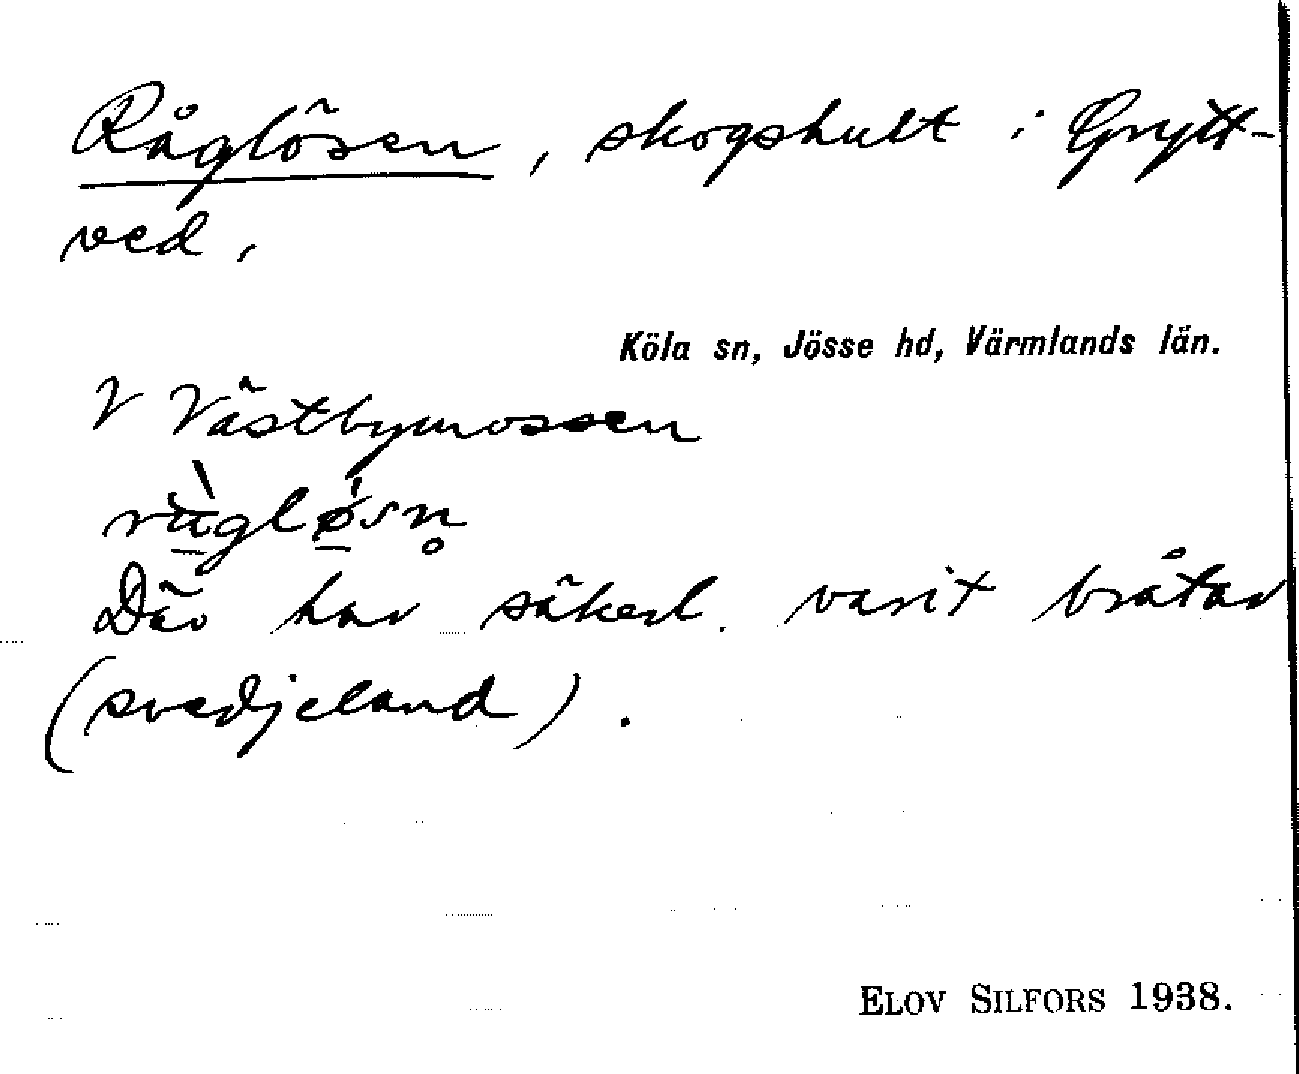 Råglösen, skogshult i Grytt-
ved,
Köla sn, Jösse hd, Värmlands län.
V Västbymossen
rùg̀løsn̥
Där har säkerl. varit bråtar
(svedjeland).
ELOV SILFORS 1938.